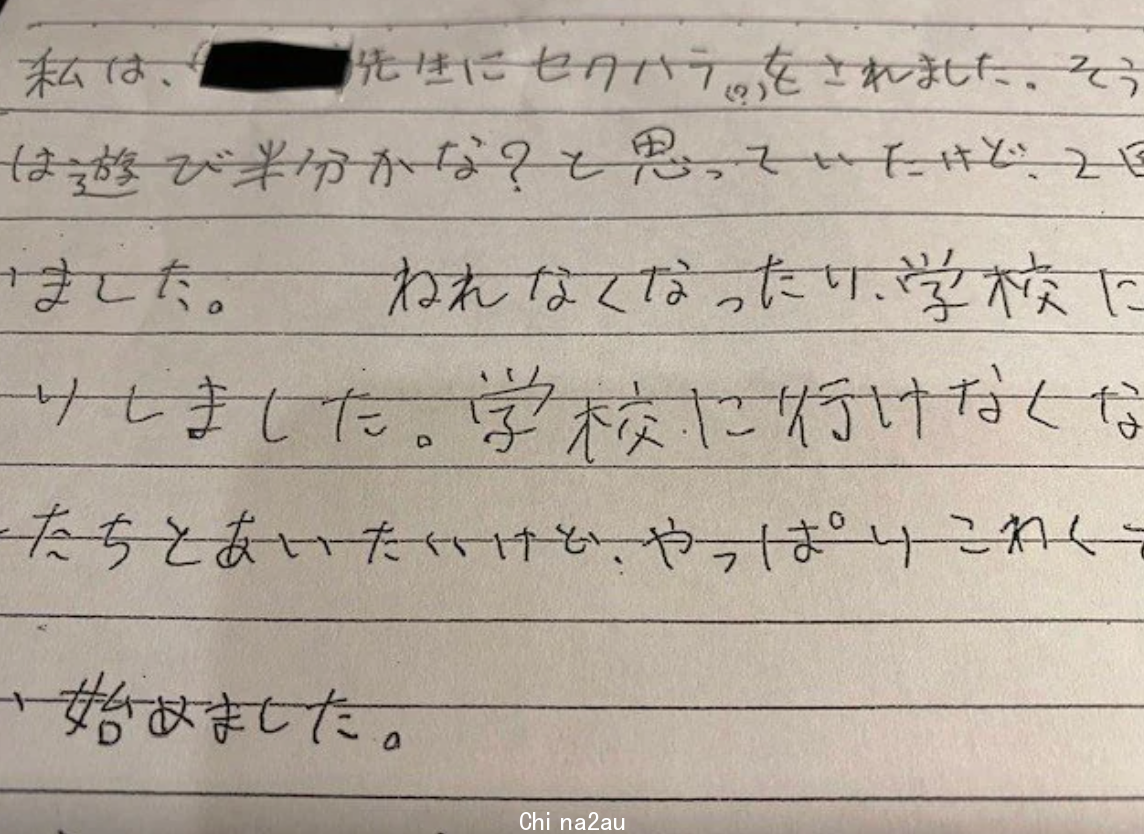 私は、先生にセクハラ(?)をされました。そう
は遊び半分かな？と思っていたけど、2回
ました。 ねれなくなったり、学校に
りしました。学校に行けなくな
たちとあいたいけど、やっぱりこわくて
始めました。
China2au